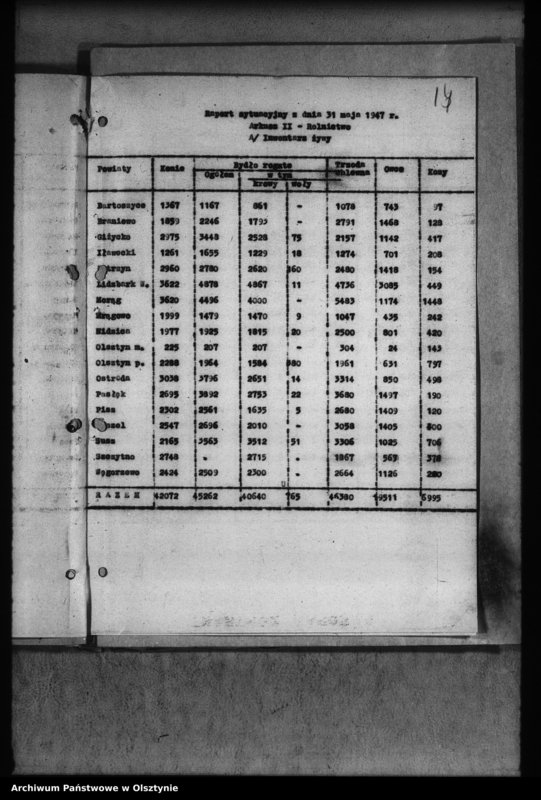 14
Raport sytuacyjny z dnia 31 maja 1947 r.
Arkusz II - Rolnictwo
A/ Inwentarz żywy
Powiaty Konie Bydło rogate Trzoda chlewna Owce Kozy
Ogółem w tym
krowy woły
Bartoszyce 1367 1167 861 - 1078 743 97
Braniewo 1859 2246 1793 - 2791 1468 128
Giżycko 2975 3448 2528 75 2157 1142 417
Iławecki 1261 1655 1229 18 1274 701 208
2960 2780 2620 160 2480 1418 154
Lidzbark W. 3622 4878 4867 11 4736 3085 449
Morąg 3620 4496 4000 - 5483 1174 1448
Mrągowo 1999 1479 1470 9 1047 435 242
Nidzica 1977 1925 1815 20 2500 801 420
Olsztyn m. 225 207 207 - 304 24 143
Olsztyn p. 2288 1964 1584 380 1961 631 737
Ostróda 3038 3796 2651 14 3314 850 498
Pasłęk 2695 3892 2753 22 3680 1497 190
Pisz 2302 2561 1635 5 2680 1409 120
2547 2696 2010 - 3058 1405 800
Susz 2165 3563 3512 51 3306 1025 706
Szczytno 2748 - 2715 - 1867 567 378
Węgorzewo 2424 2509 2300 - 2664 1126 280
R A Z E M 42072 45262 40640 765 46380 19511 6995
Archiwum Państwowe w Olsztynie